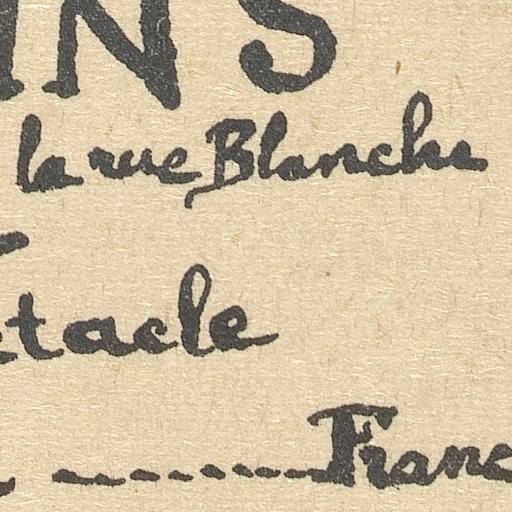 INS
la rue Blanche
ctacle
------Franc